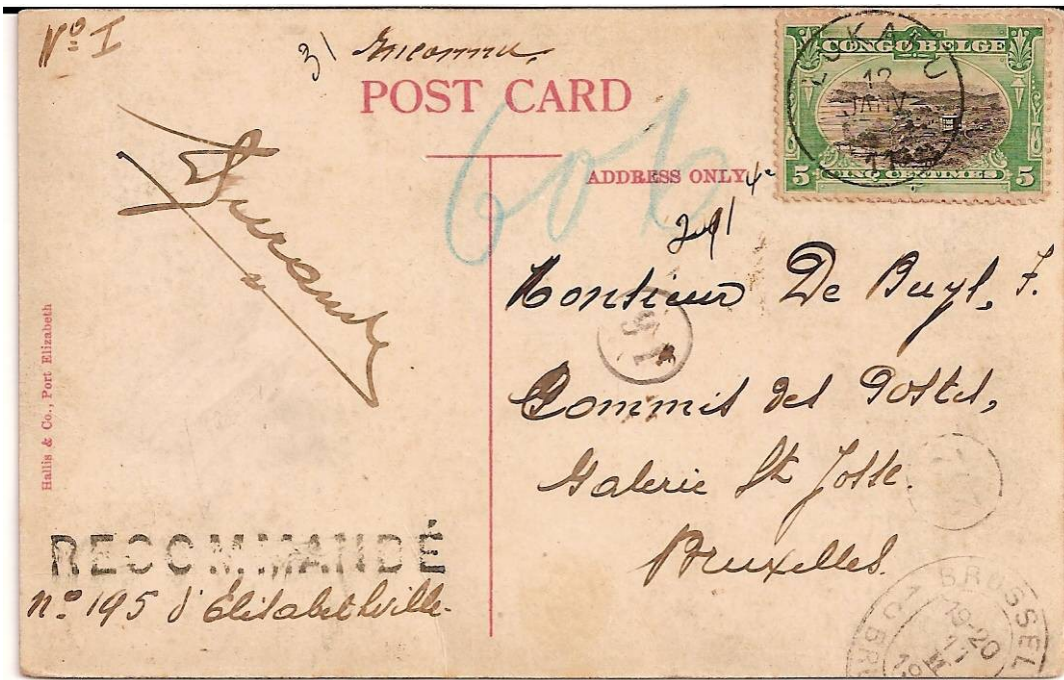 No I
31 Inconnu
POST CARD
606
ADDRESS ONLY
CONGO BELGE
5 CINQ CENTIMES 5
LUKAFU
12
JANV
11
Monsieur De Buyl, F.
Commis des Postes,
Galerie St Josse.
Bruxelles.
Hallis & Co., Port Elizabeth
RECOMMANDÉ
no 195 d'Elisabethville
BRUSSEL
19-20